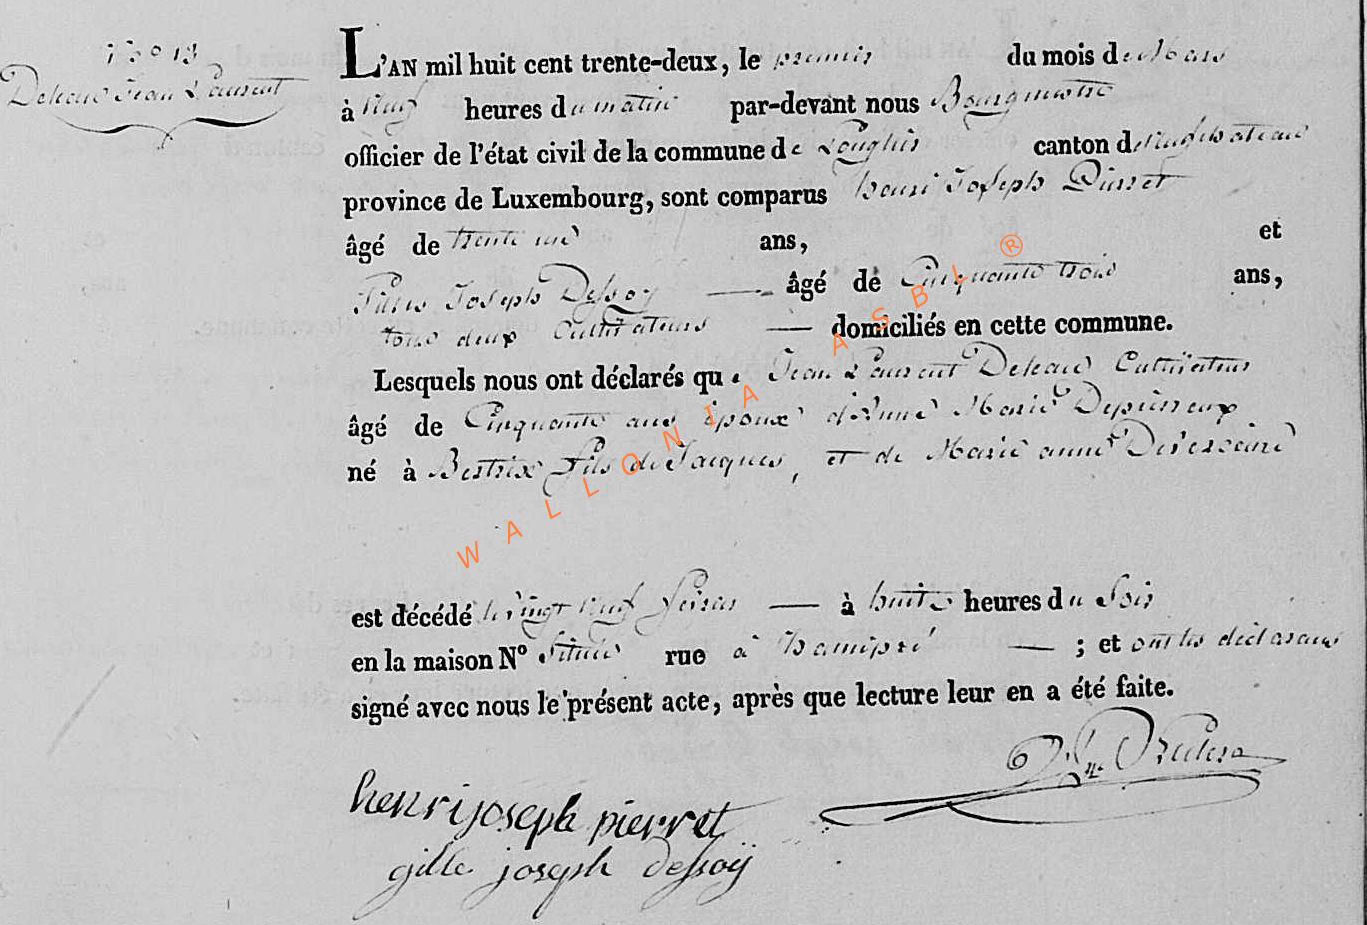 N° 13
Dehaut Jean Laurent
L'AN mil huit cent trente-deux, le premier du mois de Mars
à neuf heures du matin par-devant nous Bourgmestre
officier de l'état civil de la commune de Longlier canton de Neufchateau
province de Luxembourg, sont comparus henri Joseph Pierret
âgé de trente ans, et
Gille Joseph Dessoy âgé de Cinquante trois ans,
tous deux Cultivateurs domiciliés en cette commune.
Lesquels nous ont déclarés que Jean Laurent Cultivateur
âgé de Cinquante ans époux d'Anne Marie
né à Bertrix fils de Jacques, et de Marie anne
est décédé le vingt neuf fevrier à huit heures du Soir
en la maison N° Située rue à hamipré ; et ont les déclarans
signé avec nous le présent acte, après que lecture leur en a été faite.
henri joseph pierret
gille joseph dessoÿ
WALLONIA ASBL ®